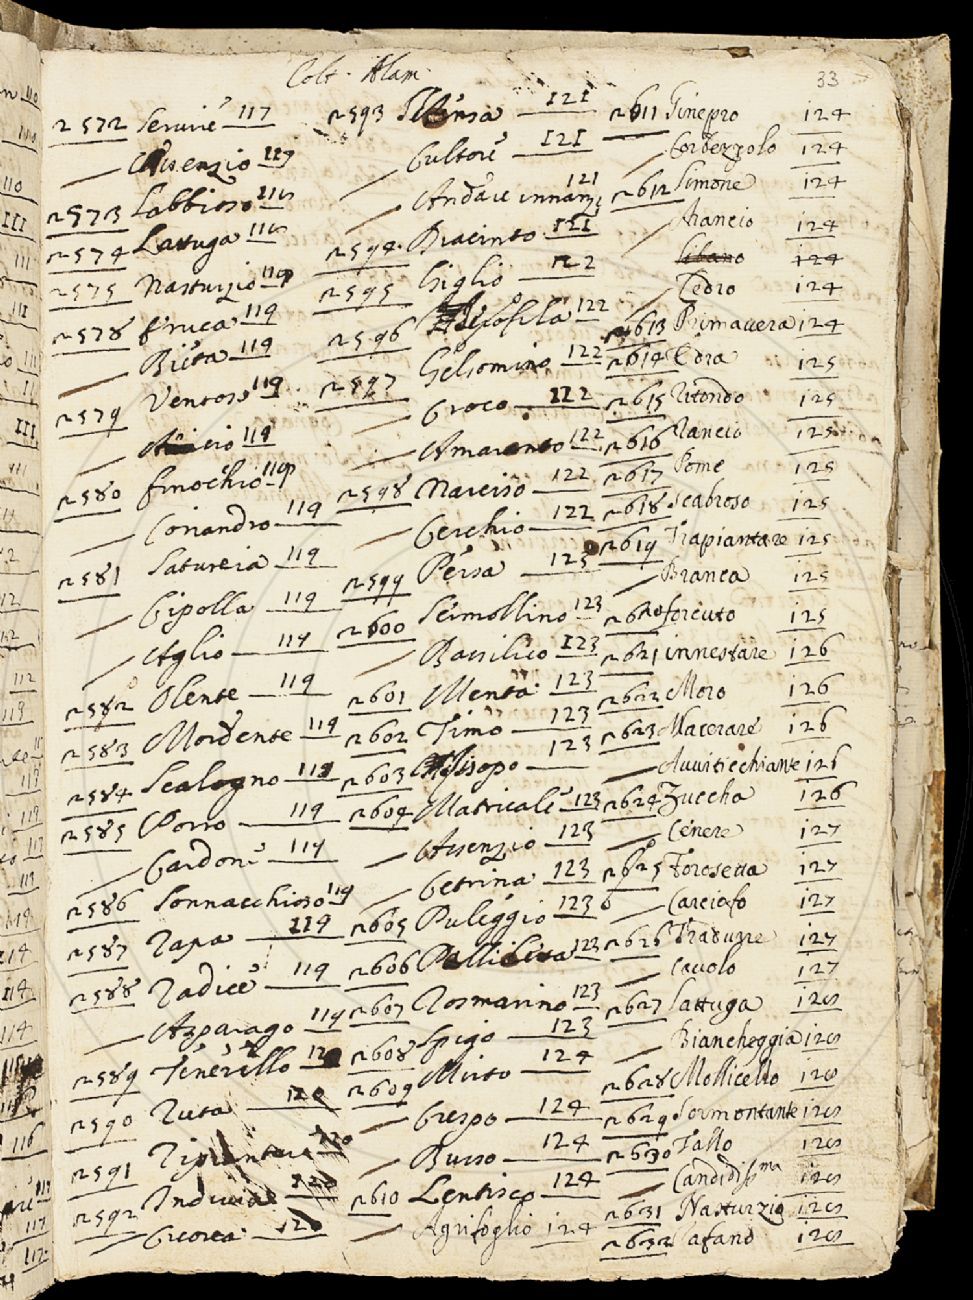 Colt. Alam.
33
2572 Scruie 117
— Assenzio 117
2573 Labbioso 118
2574 Lattuga 118
2575 Nasturzio 119
2578 Eruca 119
— Bieta 119
2579 Ventoso 119
— Anicio 119
2580 finochio 119
— Coriandro 119
2581 Satureia 119
— Cipolla 119
— Aglio 119
2582 Olente 119
2583 Mordente 119
2584 Scalogno 119
2585 Porro 119
— Cardone 119
2586 Sonnacchioso 119
2587 Rapa 119
2588 Radice 119
— Asparago 119
2589 Tenerello 120
2590 Ruta 120
2591 Ripiantare 120
2592 Indivia 120
— Cicorea 120
2593 121
— Cultore 121
— Andare innanzi 121
2594 Diacinto 121
2595 Giglio 122
2596 122
2597 Gelsomino 122
— Croco 122
— Amaranto 122
2598 Narciso 122
— Cerchio 122
2599 Persa 123
2600 Sermollino 123
— Bassilico 123
2601 Menta 123
2602 Timo 123
2603 Hisopo
2604 Matricale 123
— Assenzio 123
— Cetrina 123
2605 Puleggio 123
2606 123
2607 Rosmarino 123
2608 Spigo 123
2609 Mirto 124
— Crespo 124
— Busso 124
2610 Lentisco 124
— Agrifoglio 124
2611 Ginepro 124
— Corbezzolo 124
2612 Limone 124
— Arancio 124
Libano 124
— Cedro 124
2613 Primavera 124
2614 Edra 125
2615 Ritondo 125
2616 Rancio 125
2617 Pome 125
2618 Scabroso 125
2619 Trapiantare 125
— Branca 125
2620 forcuto 125
2621 innestare 126
2622 Moro 126
2623 Macerare 126
— Avviticchiante 126
2624 Zuccha 126
— Cenere 127
2625 Foresetta 127
— Carciofo 127
2626 Tradurre 127
— Cavolo 127
2627 Lattuga 128
— Biancheggia 128
2628 Mollicello 128
2629 Sormontante 128
2630 Tallo 128
— Candidissma 128
2631 Nasturzio 128
2632 Rafano 128